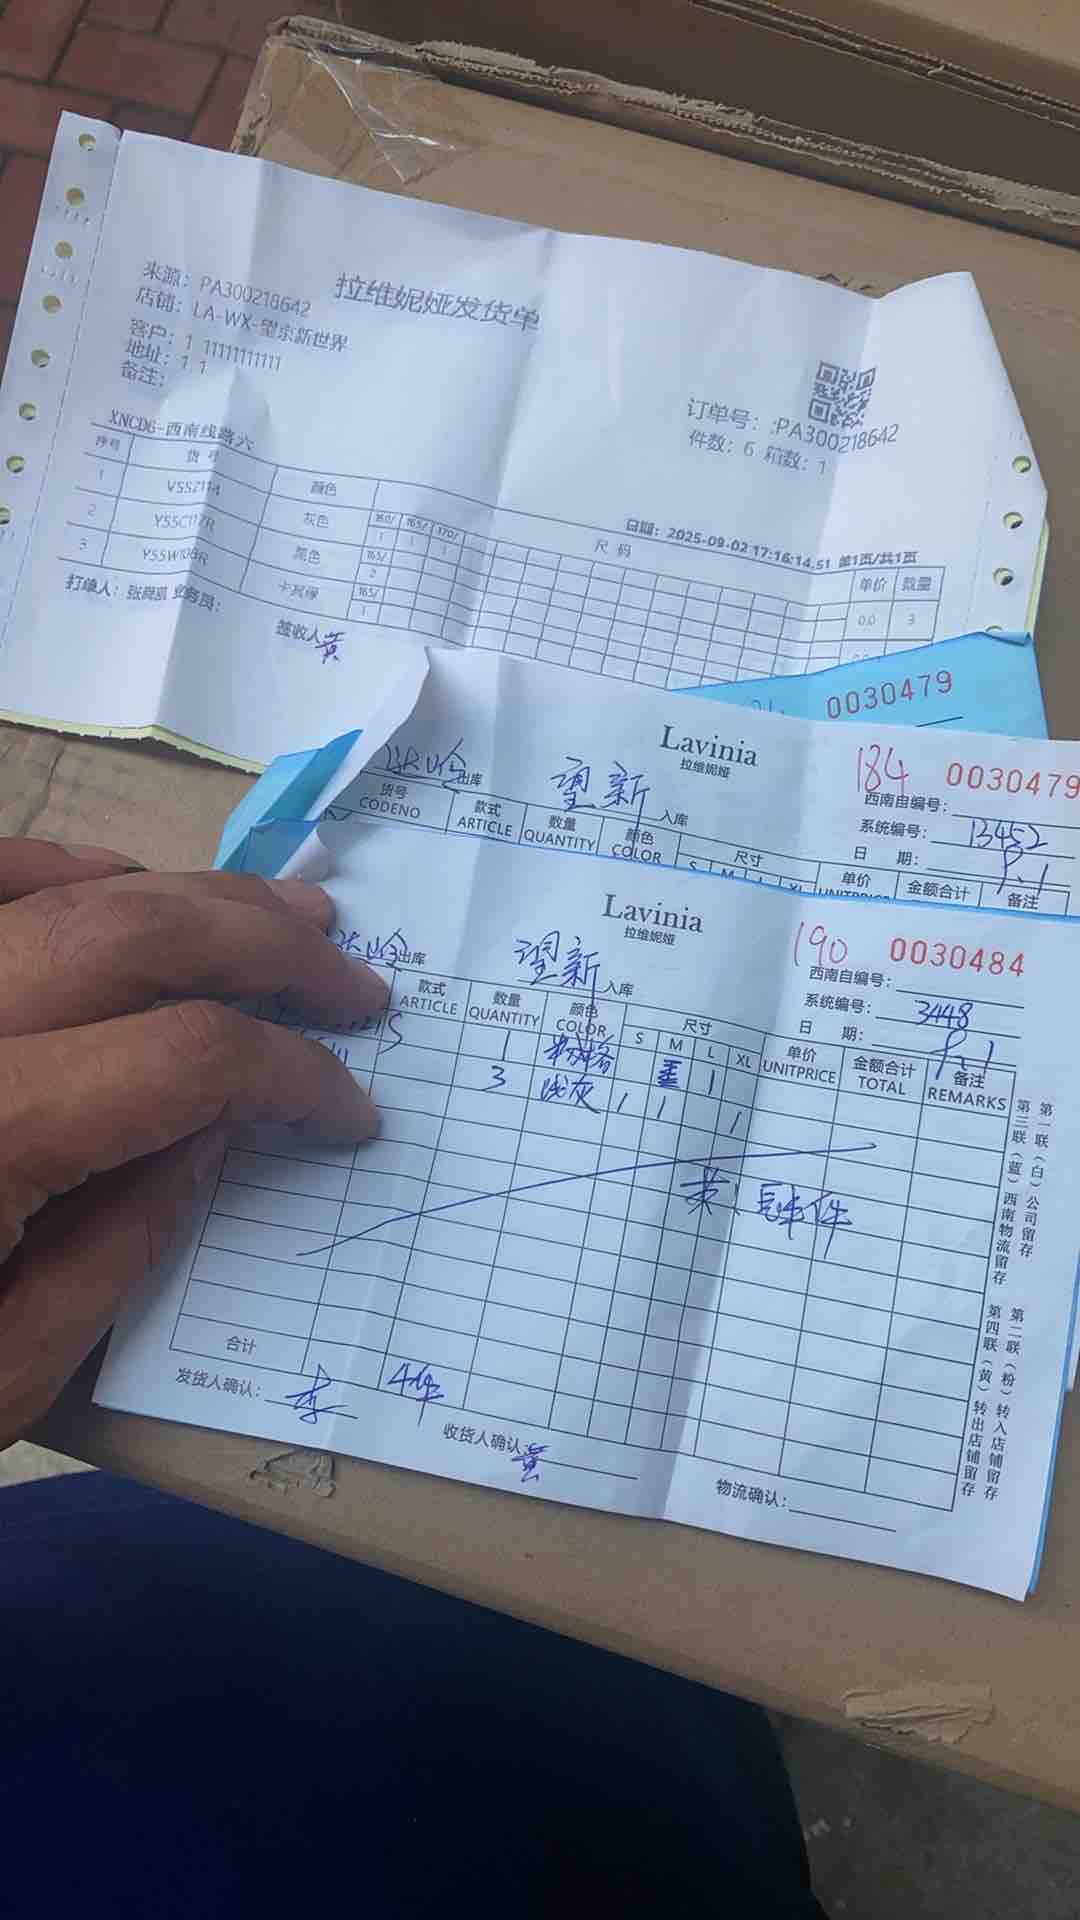 拉维妮娅发货单
来源：PA300218642
店铺：LA-WX-望京新世界
客户：1 11111111111
地址：1 1
备注：
订单号：:PA300218642
件数：6 箱数：1
XNCDG-西南线路六
日期：2025-09-02 17:16:14.51 第1页/共1页
序号 货号 颜色 尺码 单价 数量
1 灰色 160/ 165/ 170/ 0.0 3
1 1 1
2 Y55C117R 黑色 165/
2
3 Y55W108R 165/
1
打单人： 业务员： 签收人 黄
0030479
Lavinia
拉维妮娅
184 0030479
出库 望新 入库
西南自编号：
系统编号：13452
日 期：9.1
货号 CODENO 款式 ARTICLE 数量 QUANTITY 颜色 COLOR 尺寸 S M L XL 单价 UNITPRICE 金额合计 备注
Lavinia
拉维妮娅
190 0030484
出库 望新 入库
西南自编号：
系统编号：3448
日 期：9.1
款式 ARTICLE 数量 QUANTITY 颜色 COLOR 尺寸 S M L XL 单价 UNITPRICE 金额合计 TOTAL 备注 REMARKS
1 1
3 浅灰 1 1 1
合计
4件
发货人确认：李
收货人确认 黄
物流确认：
第一联（白）公司留存
第三联（蓝）西南物流留存
第二联（粉）转入店铺留存
第四联（黄）转出店铺留存